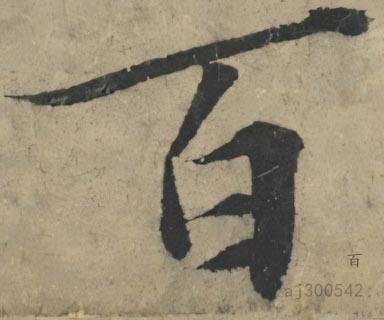 百
百
aj300542